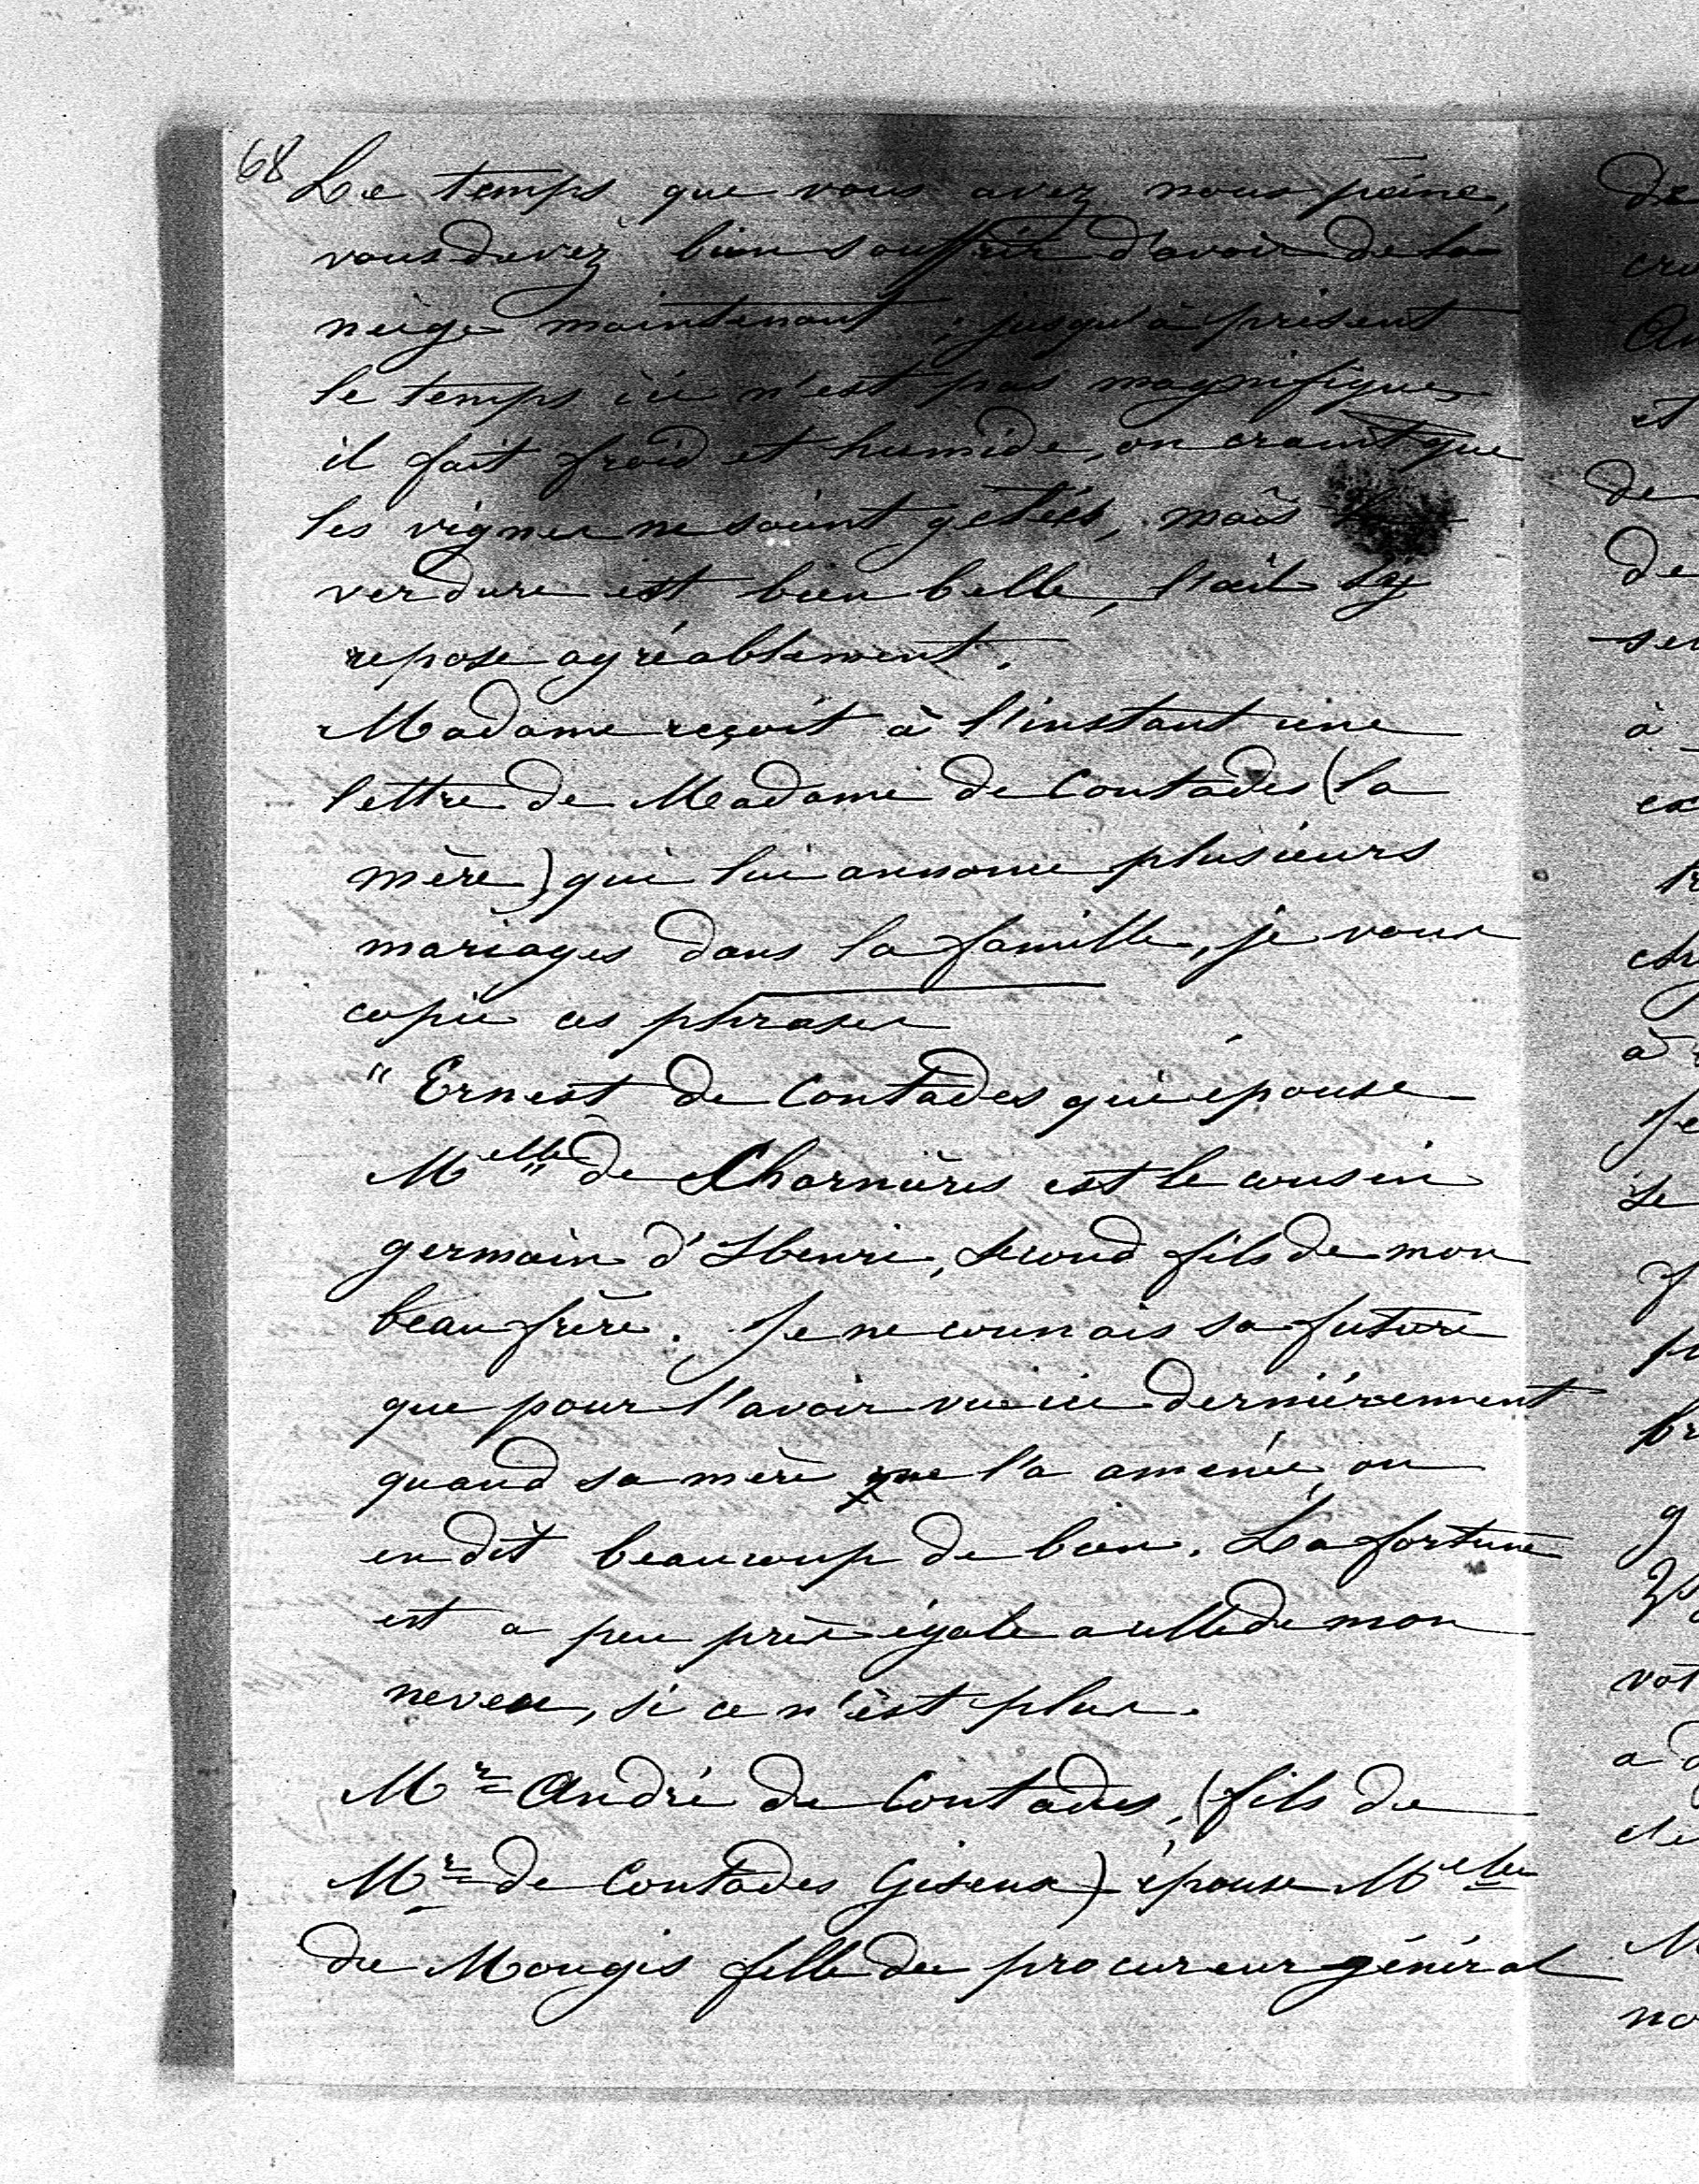 68
Le temps que vous avez nous peine,
vous devez bien souffrir d'avoir de la
neige maintenant ; jusqu'à présent
le temps ici n'est pas magnifique,
il fait froid et humide, on craint que
les vignes ne soient gelées, mais la
verdure est bien belle, l'œil s'y
repose agréablement.
Madame reçoit à l'instant une
lettre de Madame de Contades (la
mère) qui lui annonce plusieurs
mariages dans la famille, je vous
copie ces phrases
" Ernest de Contades qui épouse
Melle de Charnières est le cousin
germain d'Henri, second fils de mon
beau frère. Je ne connais sa future
que pour l'avoir vue ici dernièrement
quand sa mère me l'a amenée, on
en dit beaucoup de bien. La fortune
est a peu près égale a celle de mon
neveu, si ce n'est plus.
Mr André de Contades, (fils de
Mr de Contades Giseux) épouse Melle
de Mougis fille du procureur général
de
cru
et
de
de
à
à
Je
se
vot
no